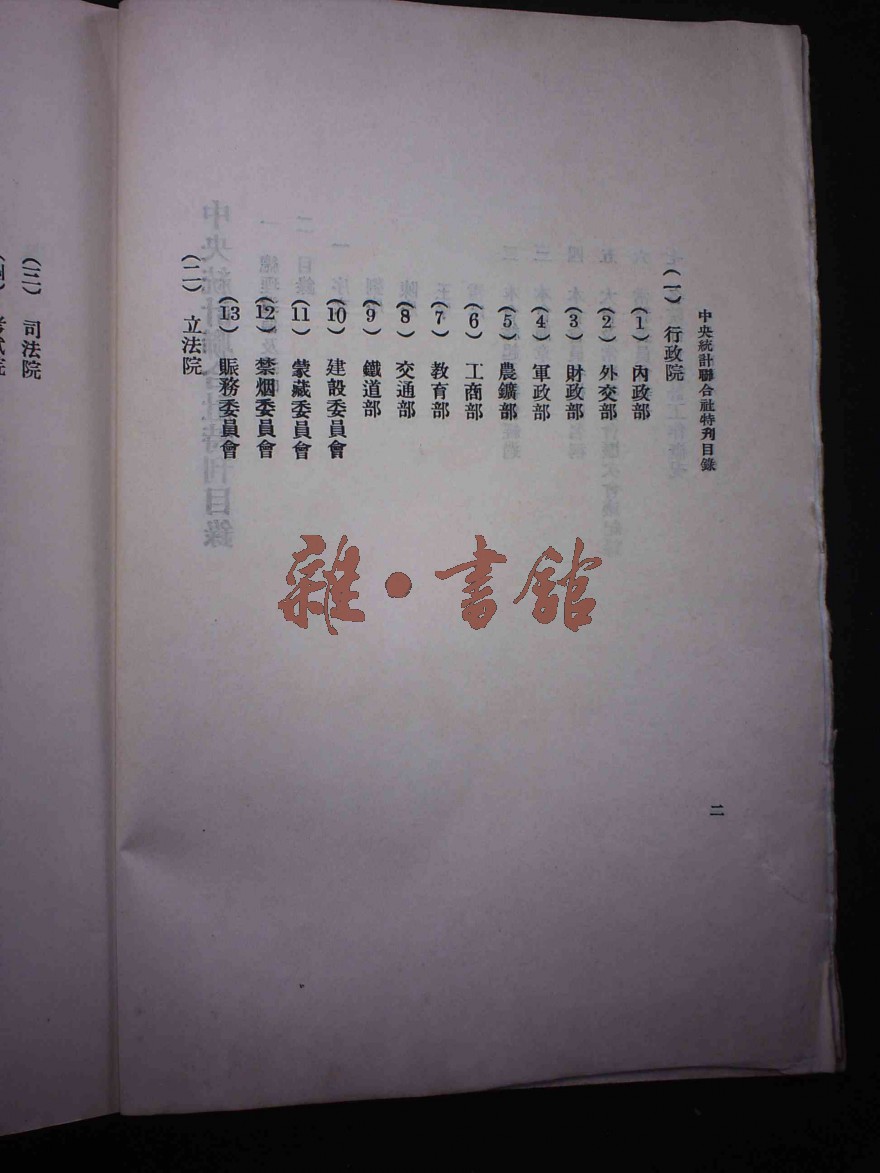 中央統計聯合社特刊目錄
(一) 行政院
(1) 內政部
(2) 外交部
(3) 財政部
(4) 軍政部
(5) 農鑛部
(6) 工商部
(7) 教育部
(8) 交通部
(9) 鐵道部
(10) 建設委員會
(11) 蒙藏委員會
(12) 禁烟委員會
(13) 賑務委員會
(二) 立法院
二
(三) 司法院
雜·書館